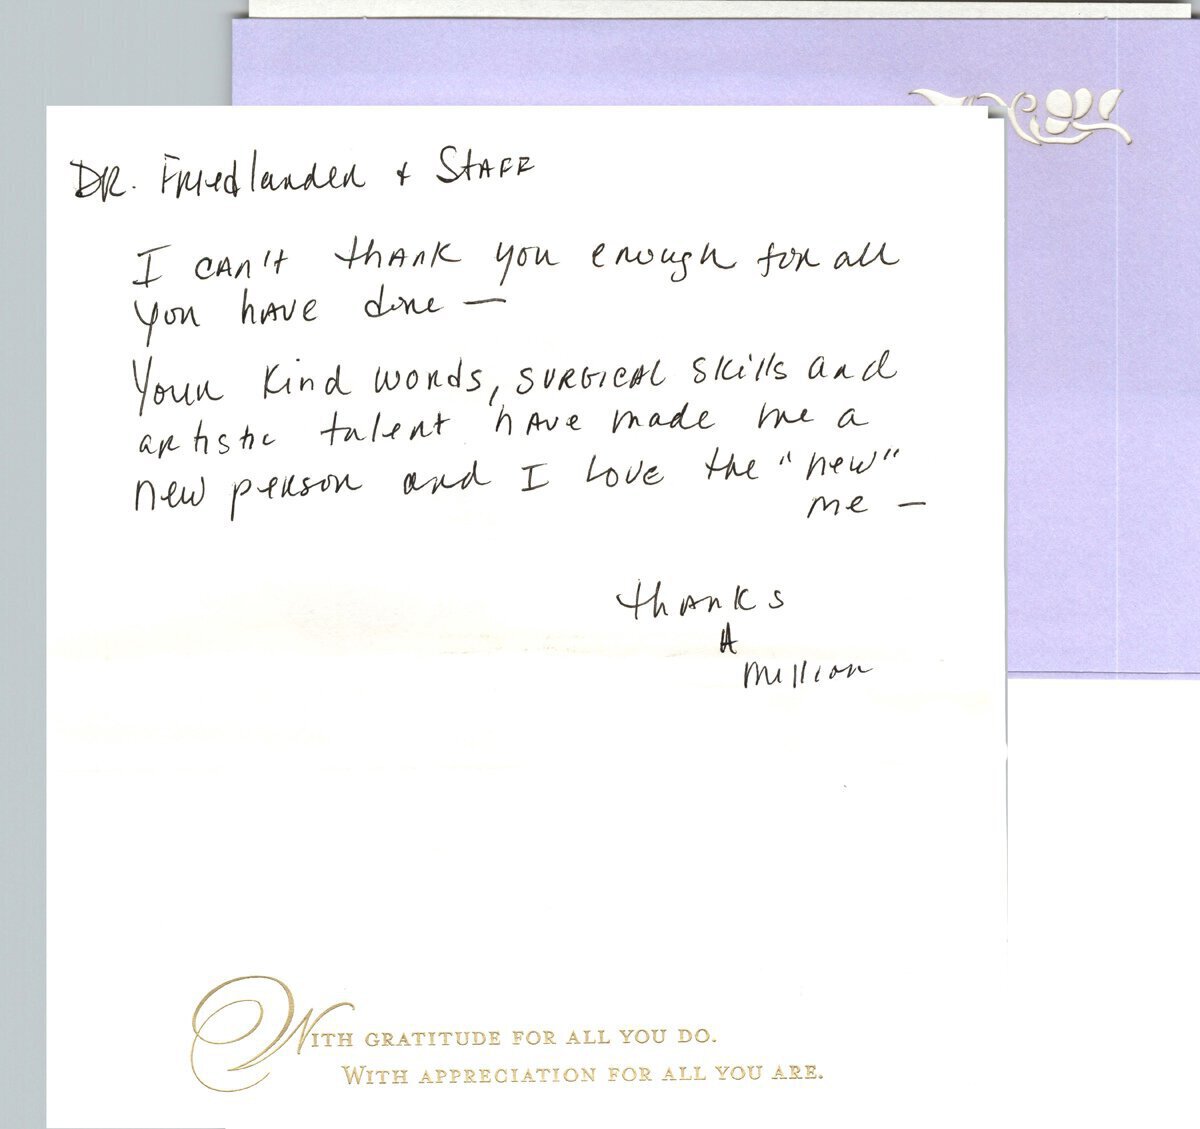 DR. Friedlander + STAFF
I can't thank you enough for all
you have done —
Your kind words, SURGICAL skills and
artistic talent have made me a
new person and I love the "new"
me —
thanks
A
million
WITH GRATITUDE FOR ALL YOU DO.
WITH APPRECIATION FOR ALL YOU ARE.